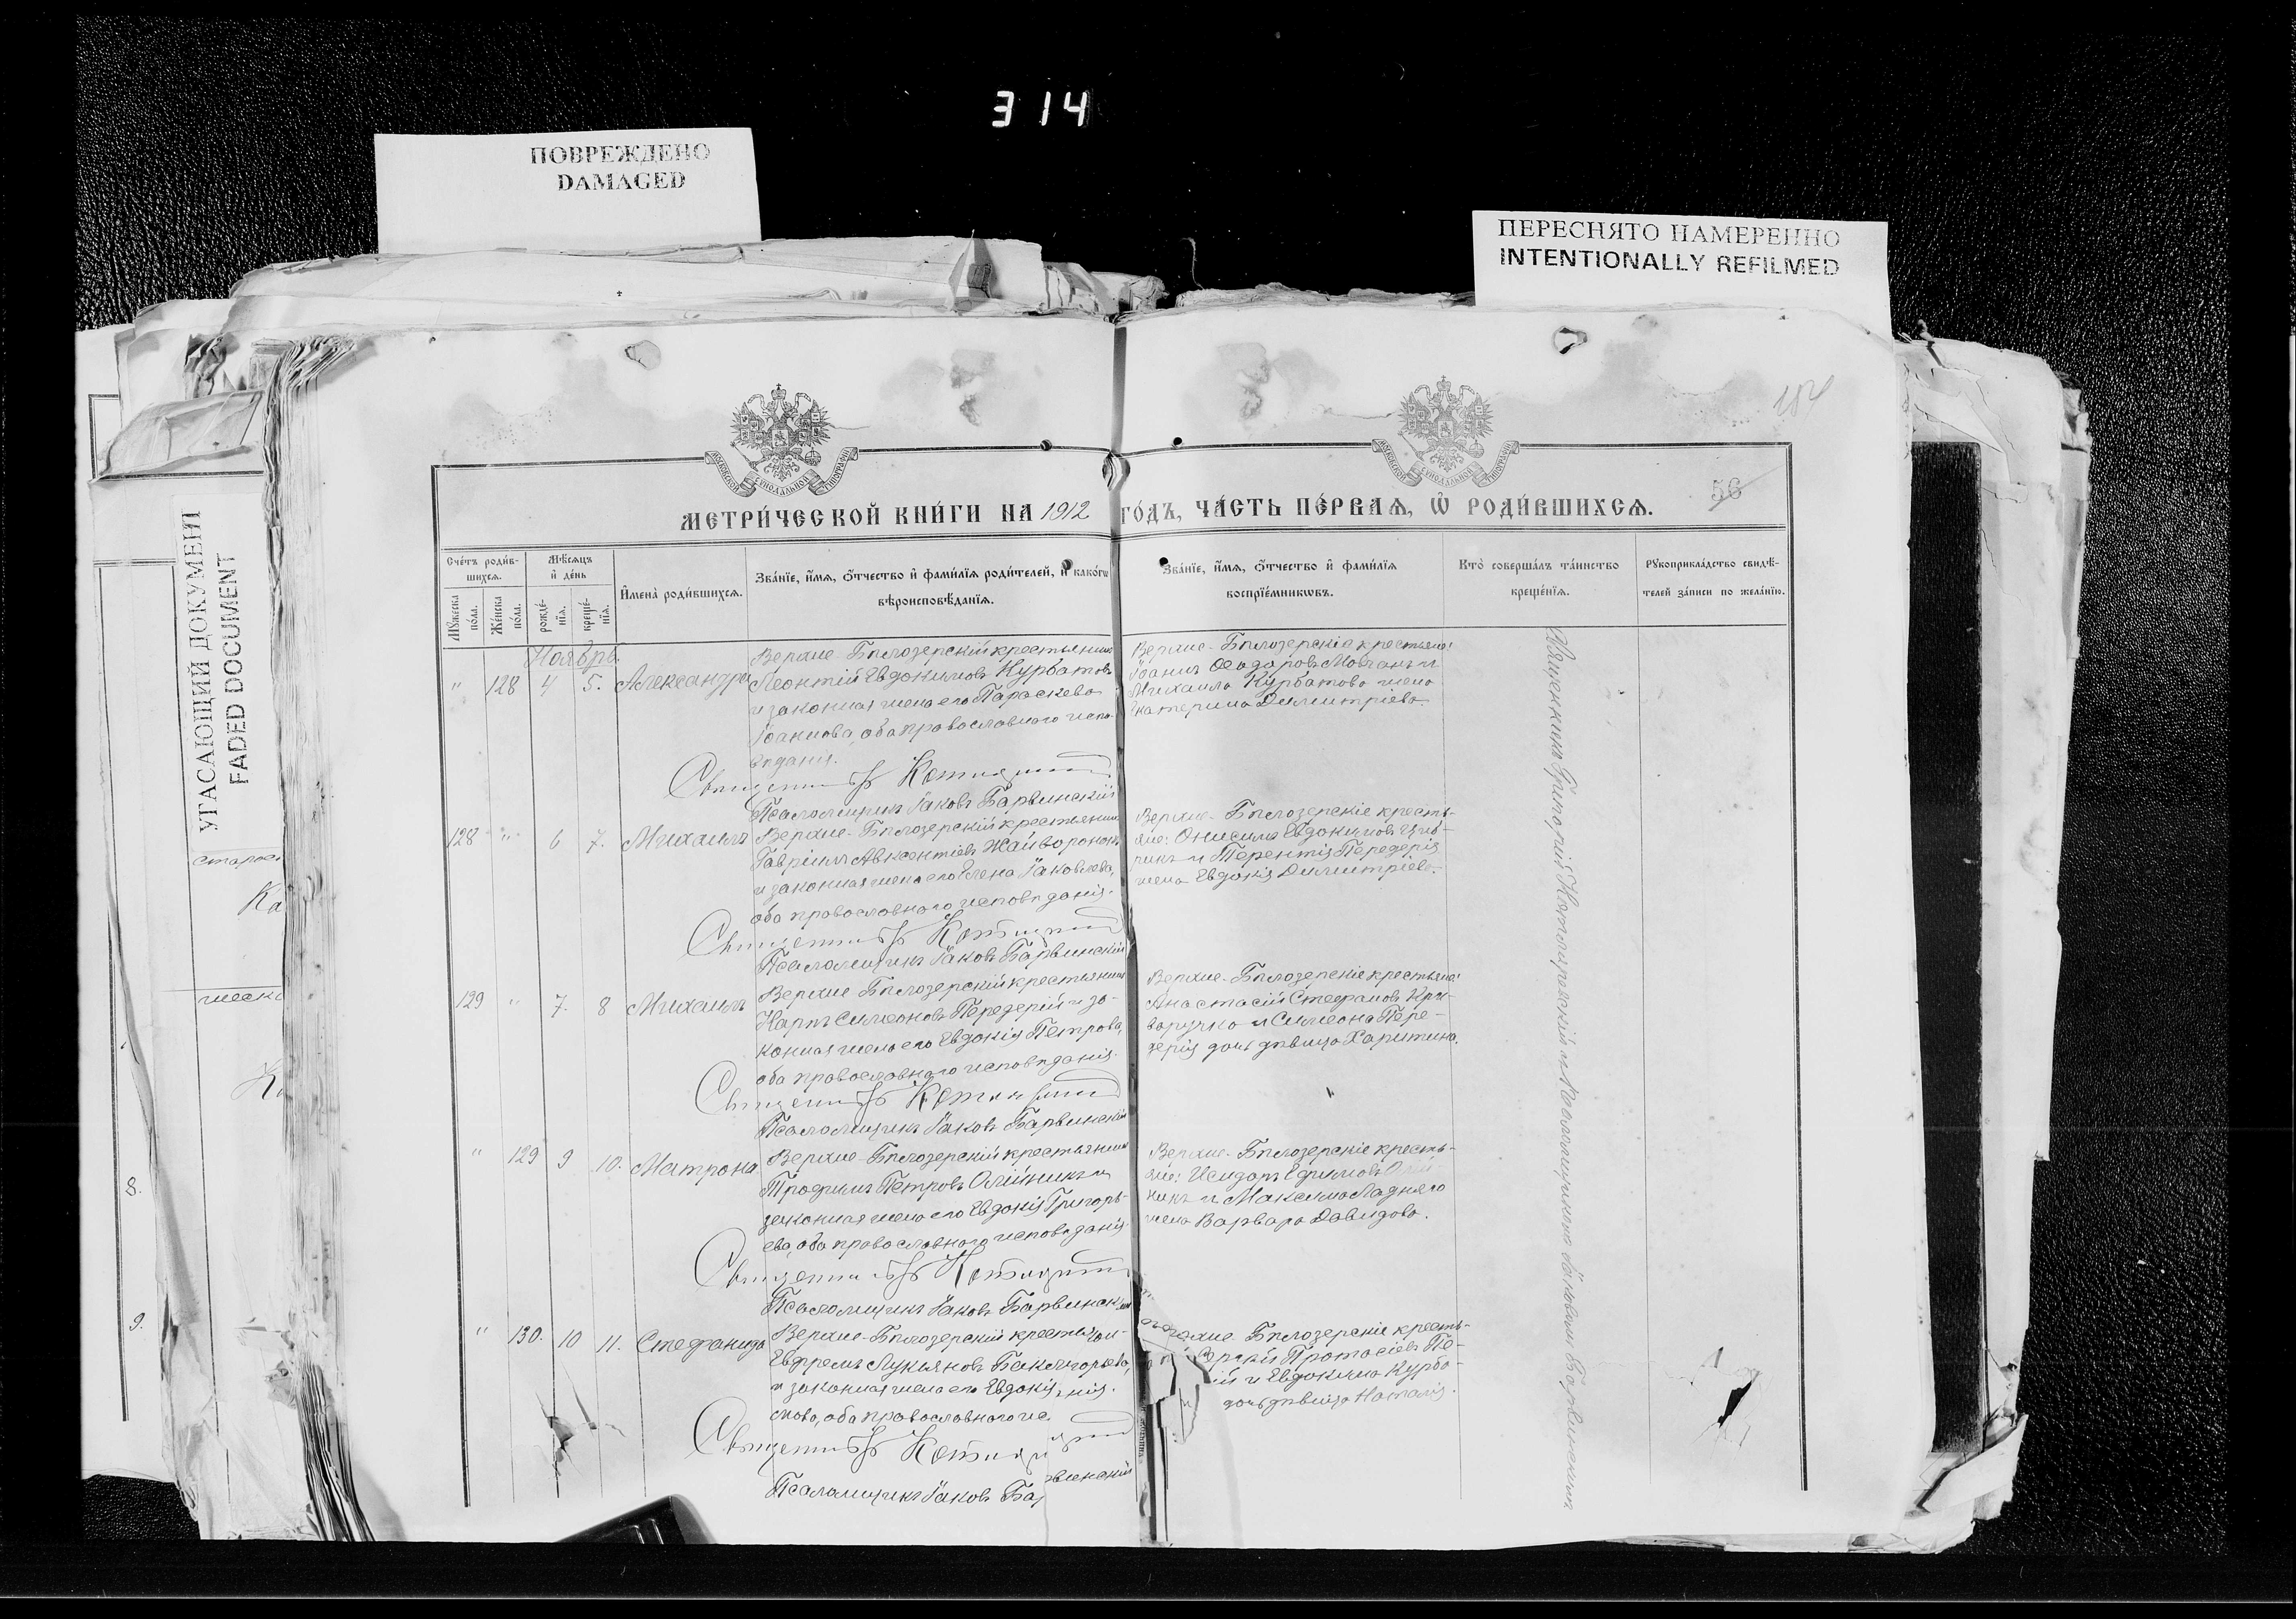 314
ПОВРЕЖДЕНО
DAMAGED
ПЕРЕСНЯТО НАМЕРЕННО
INTENTIONALLY REFILMED
УГАСАЮЩИЙ ДОКУМЕНТ
FADED DOCUMENT
184
56
МЕТРИ́ЧЕСКОЙ КНИ́ГИ НА 1912 ГО́ДЪ, ЧА́СТЬ ПЕ́РВАѦ, Ѡ҆ РОДИ́ВШИХСѦ.
Сче́тъ роди́в-
шихсѧ.
Мꙋ́жеска
по́ла.
Же́нска
по́ла.
Мѣ́сѧцъ
и҆ де́нь
рожде́-
нїѧ.
креще́-
нїѧ.
И҆мена̀ роди́вшихсѧ.
Зва́нїе, и҆́мѧ, ѻ҆́тчество и҆ фами́лїѧ роди́телей, и҆ како́гѡ
вѣроисповѣ́данїѧ.
Зва́нїе, и҆́мѧ, ѻ҆́тчество и҆ фами́лїѧ
воспрїе́мникѡвъ.
Кто̀ соверша́лъ та́инство
креще́нїѧ.
Рꙋкоприкла́дство свидѣ́-
телей за́писи по жела́нїю.
Ноябрь
" 128 4 5. Александра
Верхне-Бѣлозерскій крестьянинъ
Леонтій Евдокимовъ Курбатовъ
и законная жена его Параскева
Іоаннова, оба православнаго испо-
вѣданія.
Священникъ
Псаломщикъ Іаковъ Барвинскій
Верхне-Бѣлозерскіе крестьяне:
Іоаннъ Ѳеодоровъ Мовчанъ и
Михаила Курбатова жена
Екатерина Димитріева.
128 " 6 7. Михаилъ
Верхне-Бѣлозерскій крестьянинъ
Гавріилъ Авксентіевъ Жайворонокъ
и законная жена его Елена Іаковлева,
оба православнаго исповѣданія.
Священникъ
Псаломщикъ Іаковъ Барвинскій
Верхне-Бѣлозерскіе кресть-
яне: Онисимъ Евдокимовъ
и Терентія Передерія
жена Евдокія Димитріева.
129 " 7. 8 Михаилъ
Верхне Бѣлозерскій крестьянинъ
Карпъ Симеоновъ Передерій и за-
конная жена его Евдокія Петрова,
оба православнаго исповѣданія.
Священникъ
Псаломщикъ Іаковъ Барвинскій
Верхне-Бѣлозерскіе крестьяне:
Анастасій Стефановъ Кри-
воручко и Симеона Пере-
дерія дочь дѣвица Харитина.
" 129 9 10. Матрона
Верхне-Бѣлозерскій крестьянинъ
Трофимъ Петровъ Олійникъ и
законная жена его Евдокія Григорь-
ева, оба православнаго исповѣданія.
Священникъ
Псаломщикъ Іаковъ Барвинскій
Верхне-Бѣлозерскіе кресть-
яне: Исидоръ Ефимовъ Олій
никъ и Максима Ладняго
жена Варвара Давидова.
" 130. 10 11. Стефанида
Верхне-Бѣлозерскій крестьянин-
Ефремъ Лукьяновъ
и законная жена его Евдокія
оба православнаго ис
Священникъ
Псаломщикъ Іаковъ Ба рвинскій
хне Бѣлозерскіе кресть-
Протасіевъ Пе-
ій и Евдокима Курба-
дочь дѣвица Наталія.
Священникъ Григорій и псаломщикомъ Іаковомъ Барвинскимъ
старос
Ка
8.
9.